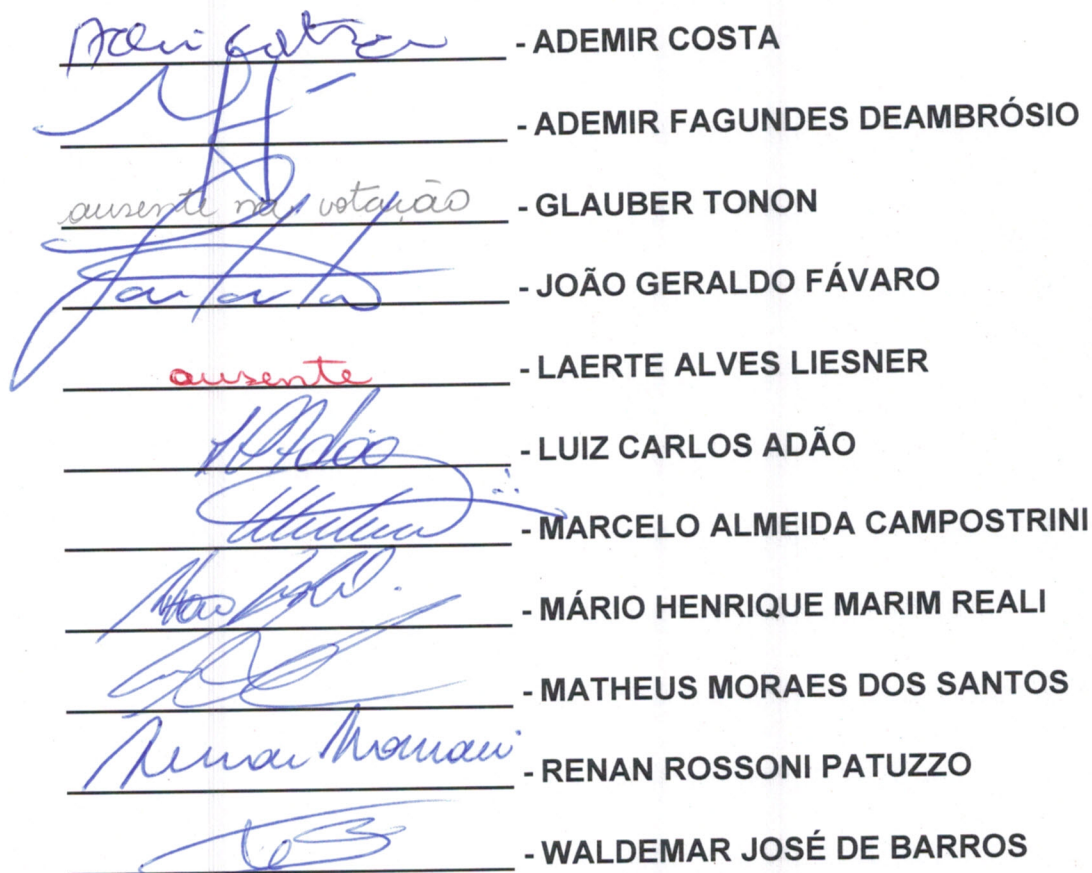 - ADEMIR COSTA
- ADEMIR FAGUNDES DEAMBRÓSIO
ausente na votação - GLAUBER TONON
- JOÃO GERALDO FÁVARO
ausente - LAERTE ALVES LIESNER
Adão - LUIZ CARLOS ADÃO
- MARCELO ALMEIDA CAMPOSTRINI
- MÁRIO HENRIQUE MARIM REALI
- MATHEUS MORAES DOS SANTOS
- RENAN ROSSONI PATUZZO
- WALDEMAR JOSÉ DE BARROS